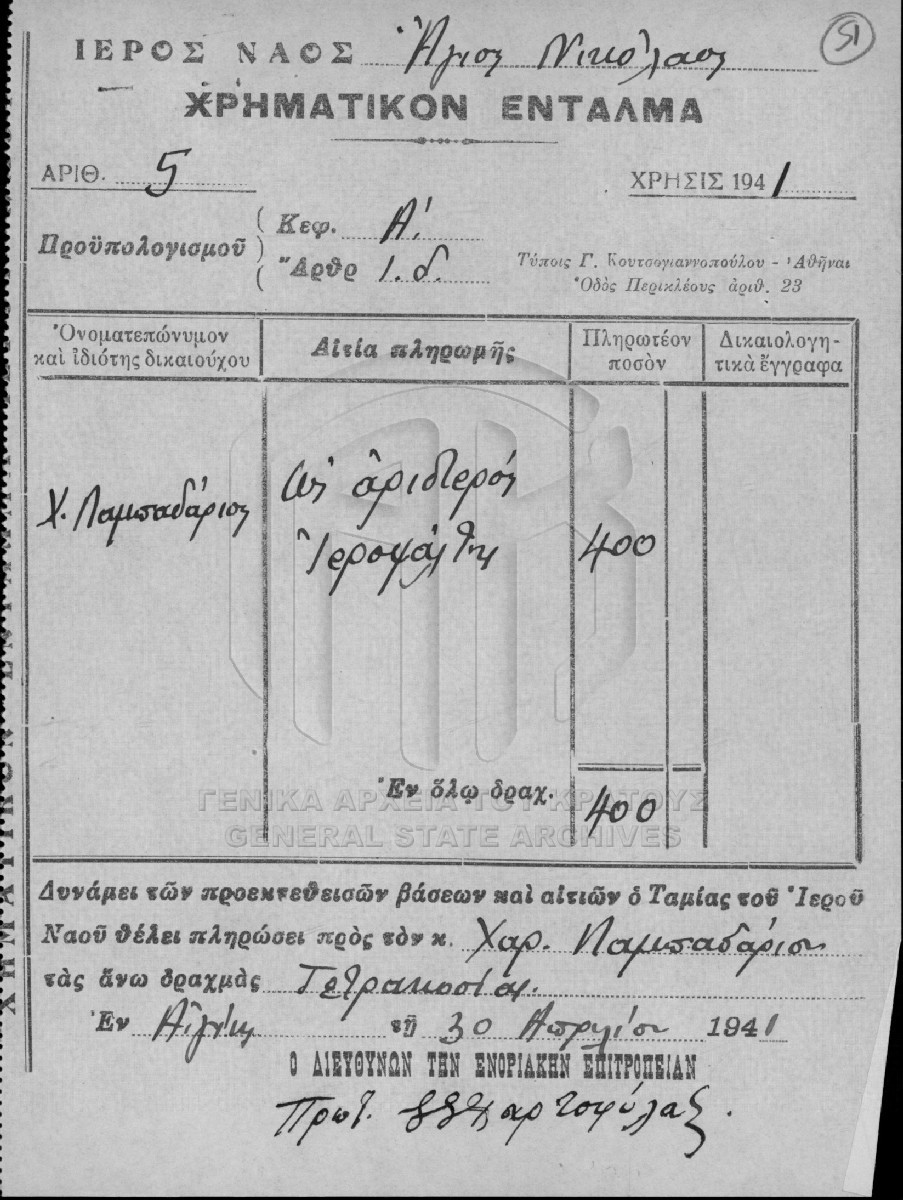 51
ΙΕΡΟΣ ΝΑΟΣ Ἅγιος Νικόλαος
ΧΡΗΜΑΤΙΚΟΝ ΕΝΤΑΛΜΑ
ΑΡΙΘ. 5
ΧΡΗΣΙΣ 1941
Προϋπολογισμοῦ
Κεφ. Α'.
Ἄρθρ 1.δ.
Τύποις Γ. Κουτσογιαννοπούλου - Ἀθῆναι
Ὁδὸς Περικλέους ἀριθ. 23
Ὀνοματεπώνυμον
καὶ ἰδιότης δικαιούχου
Αἰτία πληρωμῆς
Πληρωτέον
ποσὸν
Δικαιολογη-
τικὰ ἔγγραφα
Χ. Λαμπαδάριος
Ὡς ἀριστερός
Ἱεροψάλτης
400
Ἐν ὅλῳ δραχ.
400
ΓΕΝΙΚΑ ΑΡΧΕΙΑ ΤΟΥ ΚΡΑΤΟΥΣ
GENERAL STATE ARCHIVES
Δυνάμει τῶν προεκτεθεισῶν βάσεων καὶ αἰτιῶν ὁ Ταμίας τοῦ Ἱεροῦ
Ναοῦ θέλει πληρώσει πρὸς τὸν κ. Χαρ. Λαμπαδάριον
τὰς ἄνω δραχμὰς Τετρακοσίας.
Ἐν Αἰγίνῃ τῇ 30 Απριλίου 1941
Ο ΔΙΕΥΘΥΝΩΝ ΤΗΝ ΕΝΟΡΙΑΚΗΝ ΕΠΙΤΡΟΠΕΙΑΝ
Πρωτ. Χαρτοφύλαξ.